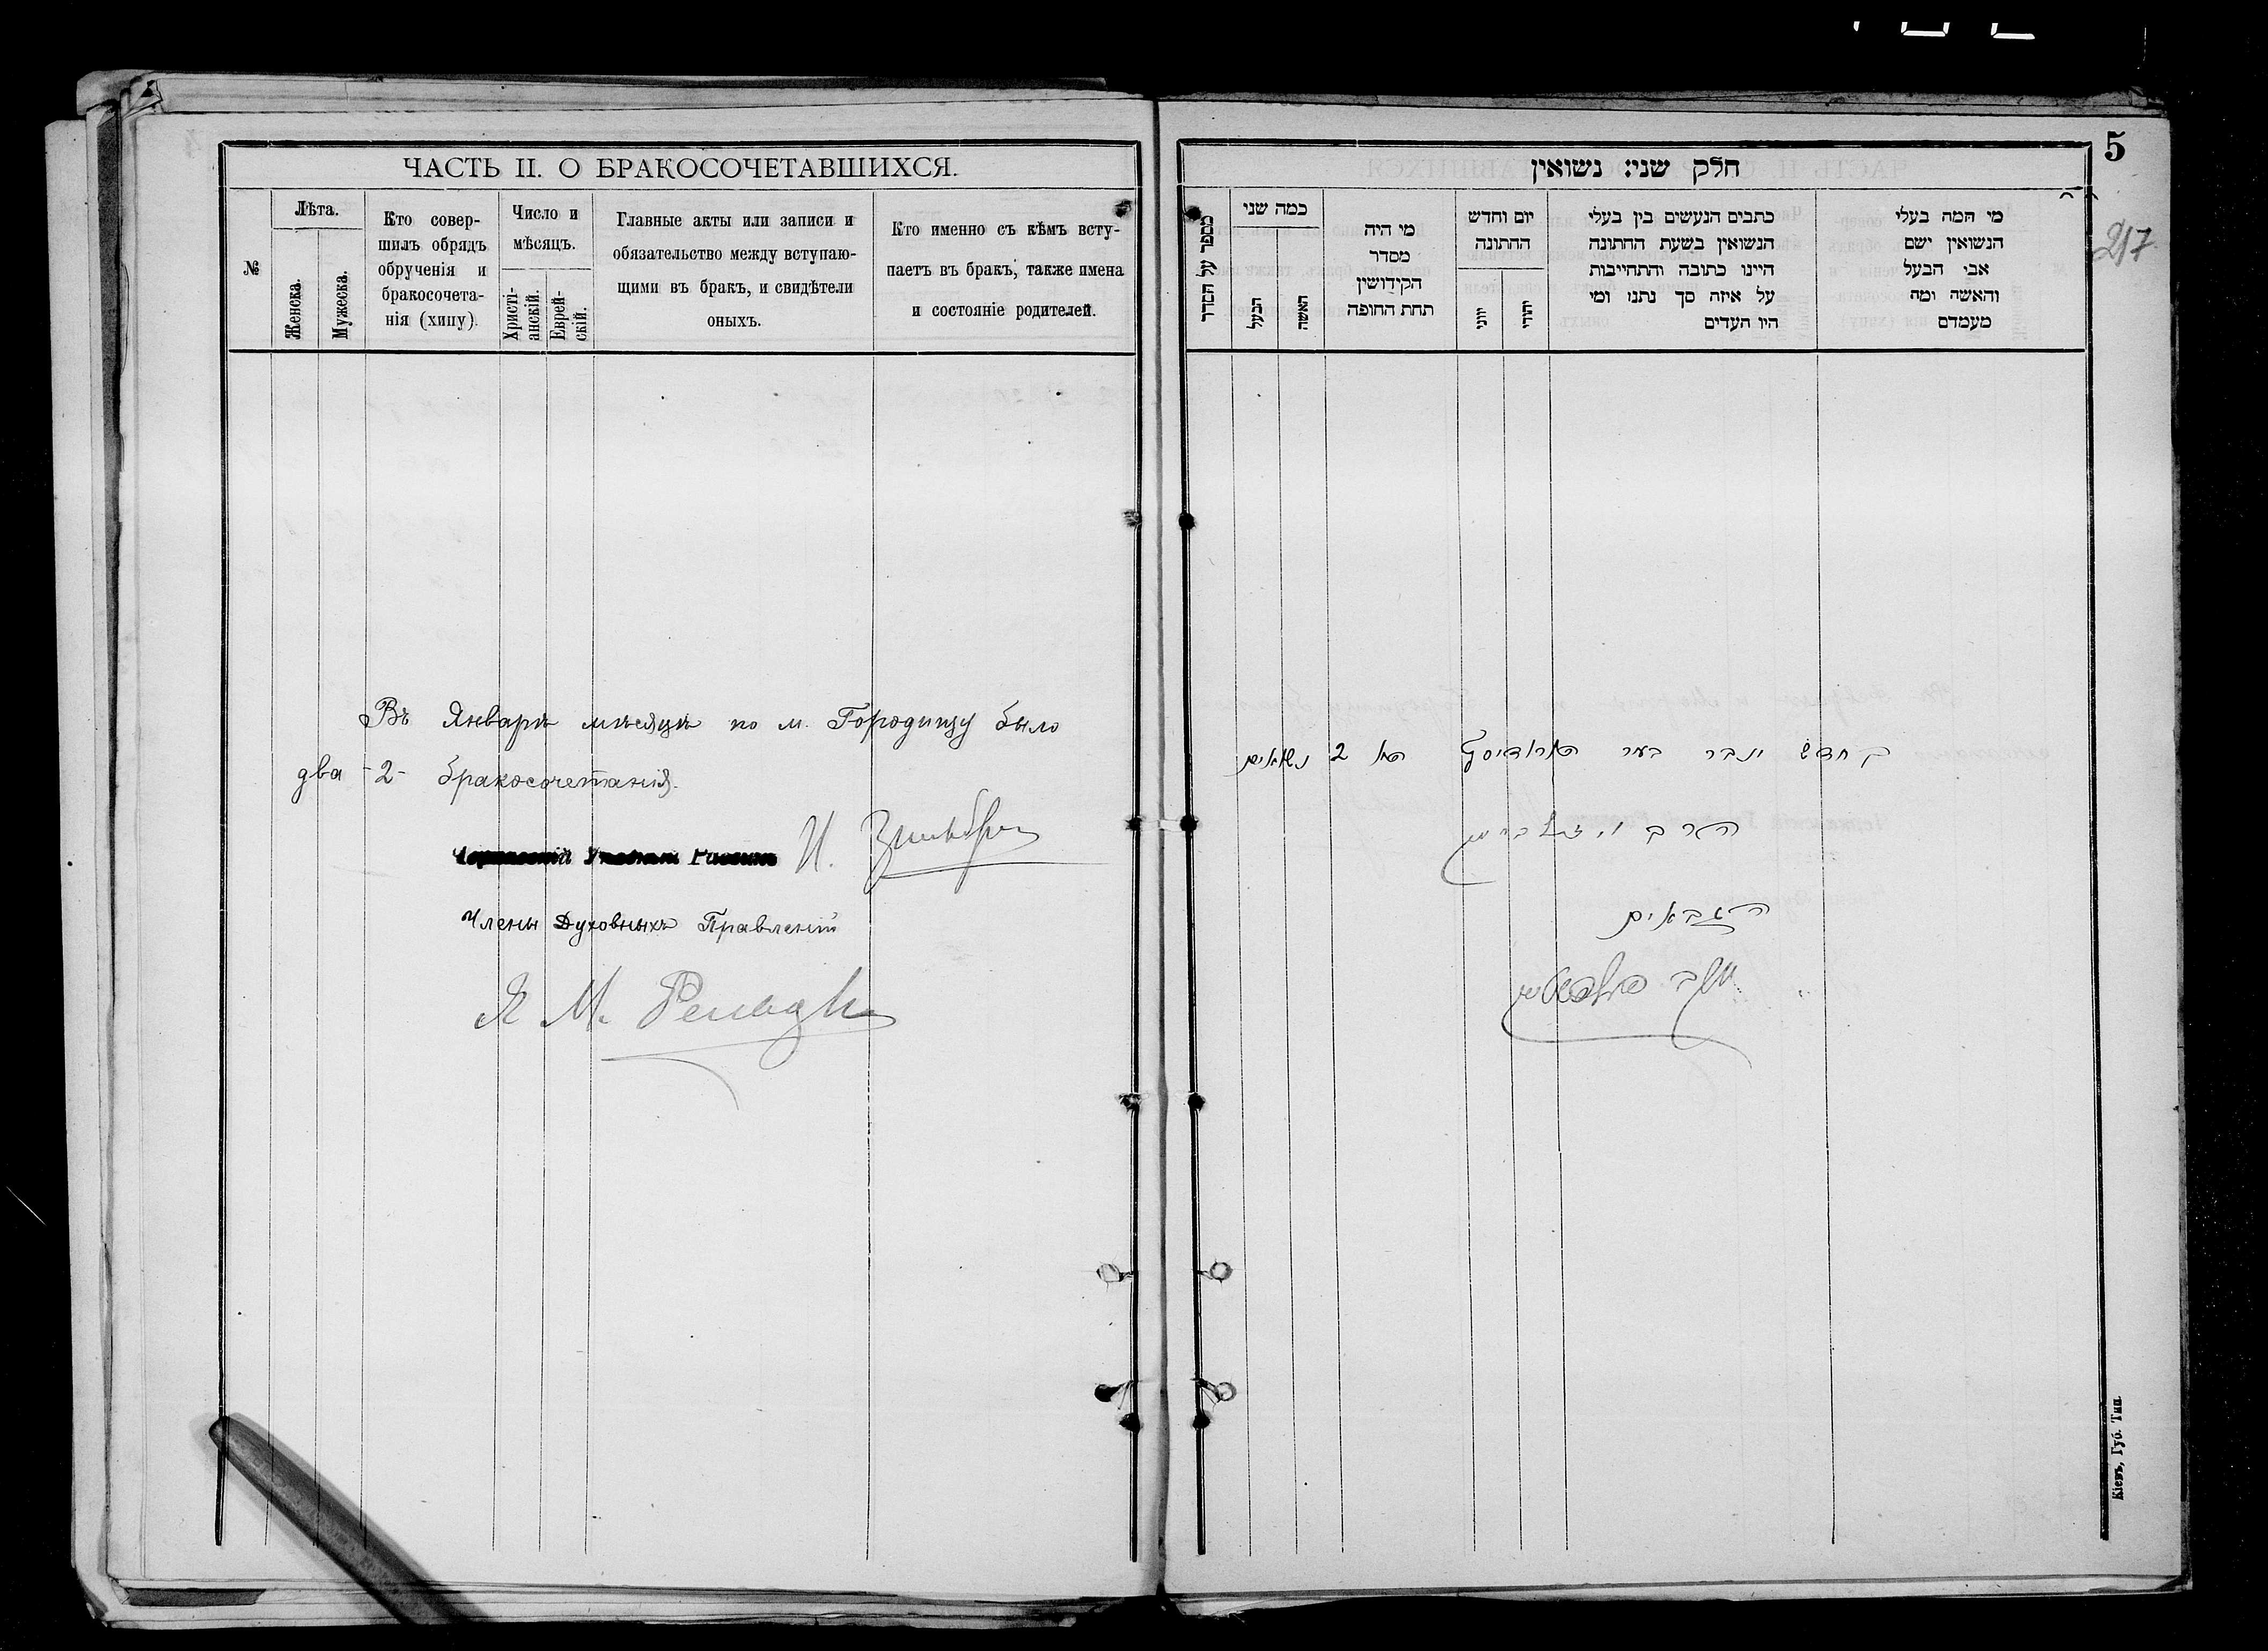 ЧАСТЬ II. О БРАКОСОЧЕТАВШИХСЯ.
№
Лѣта.
Женска.
Мужеска.
Кто совер-
шилъ обрядъ
обрученія и
бракосочета-
нія (хипу).
Число и
мѣсяцъ.
Христі-
анскій.
Еврей-
скій.
Главные акты или записи и
обязательство между вступаю-
щими въ бракъ, и свидѣтели
оныхъ.
Кто именно съ кѣмъ всту-
паетъ въ бракъ, также имена
и состояніе родителей.
Въ Январѣ мѣсяцѣ по м. Городищу было
два -2- бракосочетанія.
И.
Члены Духовныхъ Правленій
М.
5
217
חלק שני: נשואין
מספר על הסדר
כמה שני
הבעל
האשה
מי היה
מסדר
הקידושין
תחת החופה
יום וחדש
החתונה
יווני
יהודי
כתבים הנעשים בין בעלי
הנשואין בשעת החתונה
היינו כתובה והתחייבות
על איזה סך נתנו ומי
היו העדים
מי המה בעלי
הנשואין ושם
אבי הבעל
והאשה ומה
מעמדם
בחדש ינבר בעיר האראדיסץ היו 2 נשואים
הרב
הגבאים
Кіевъ, Губ. Тип.